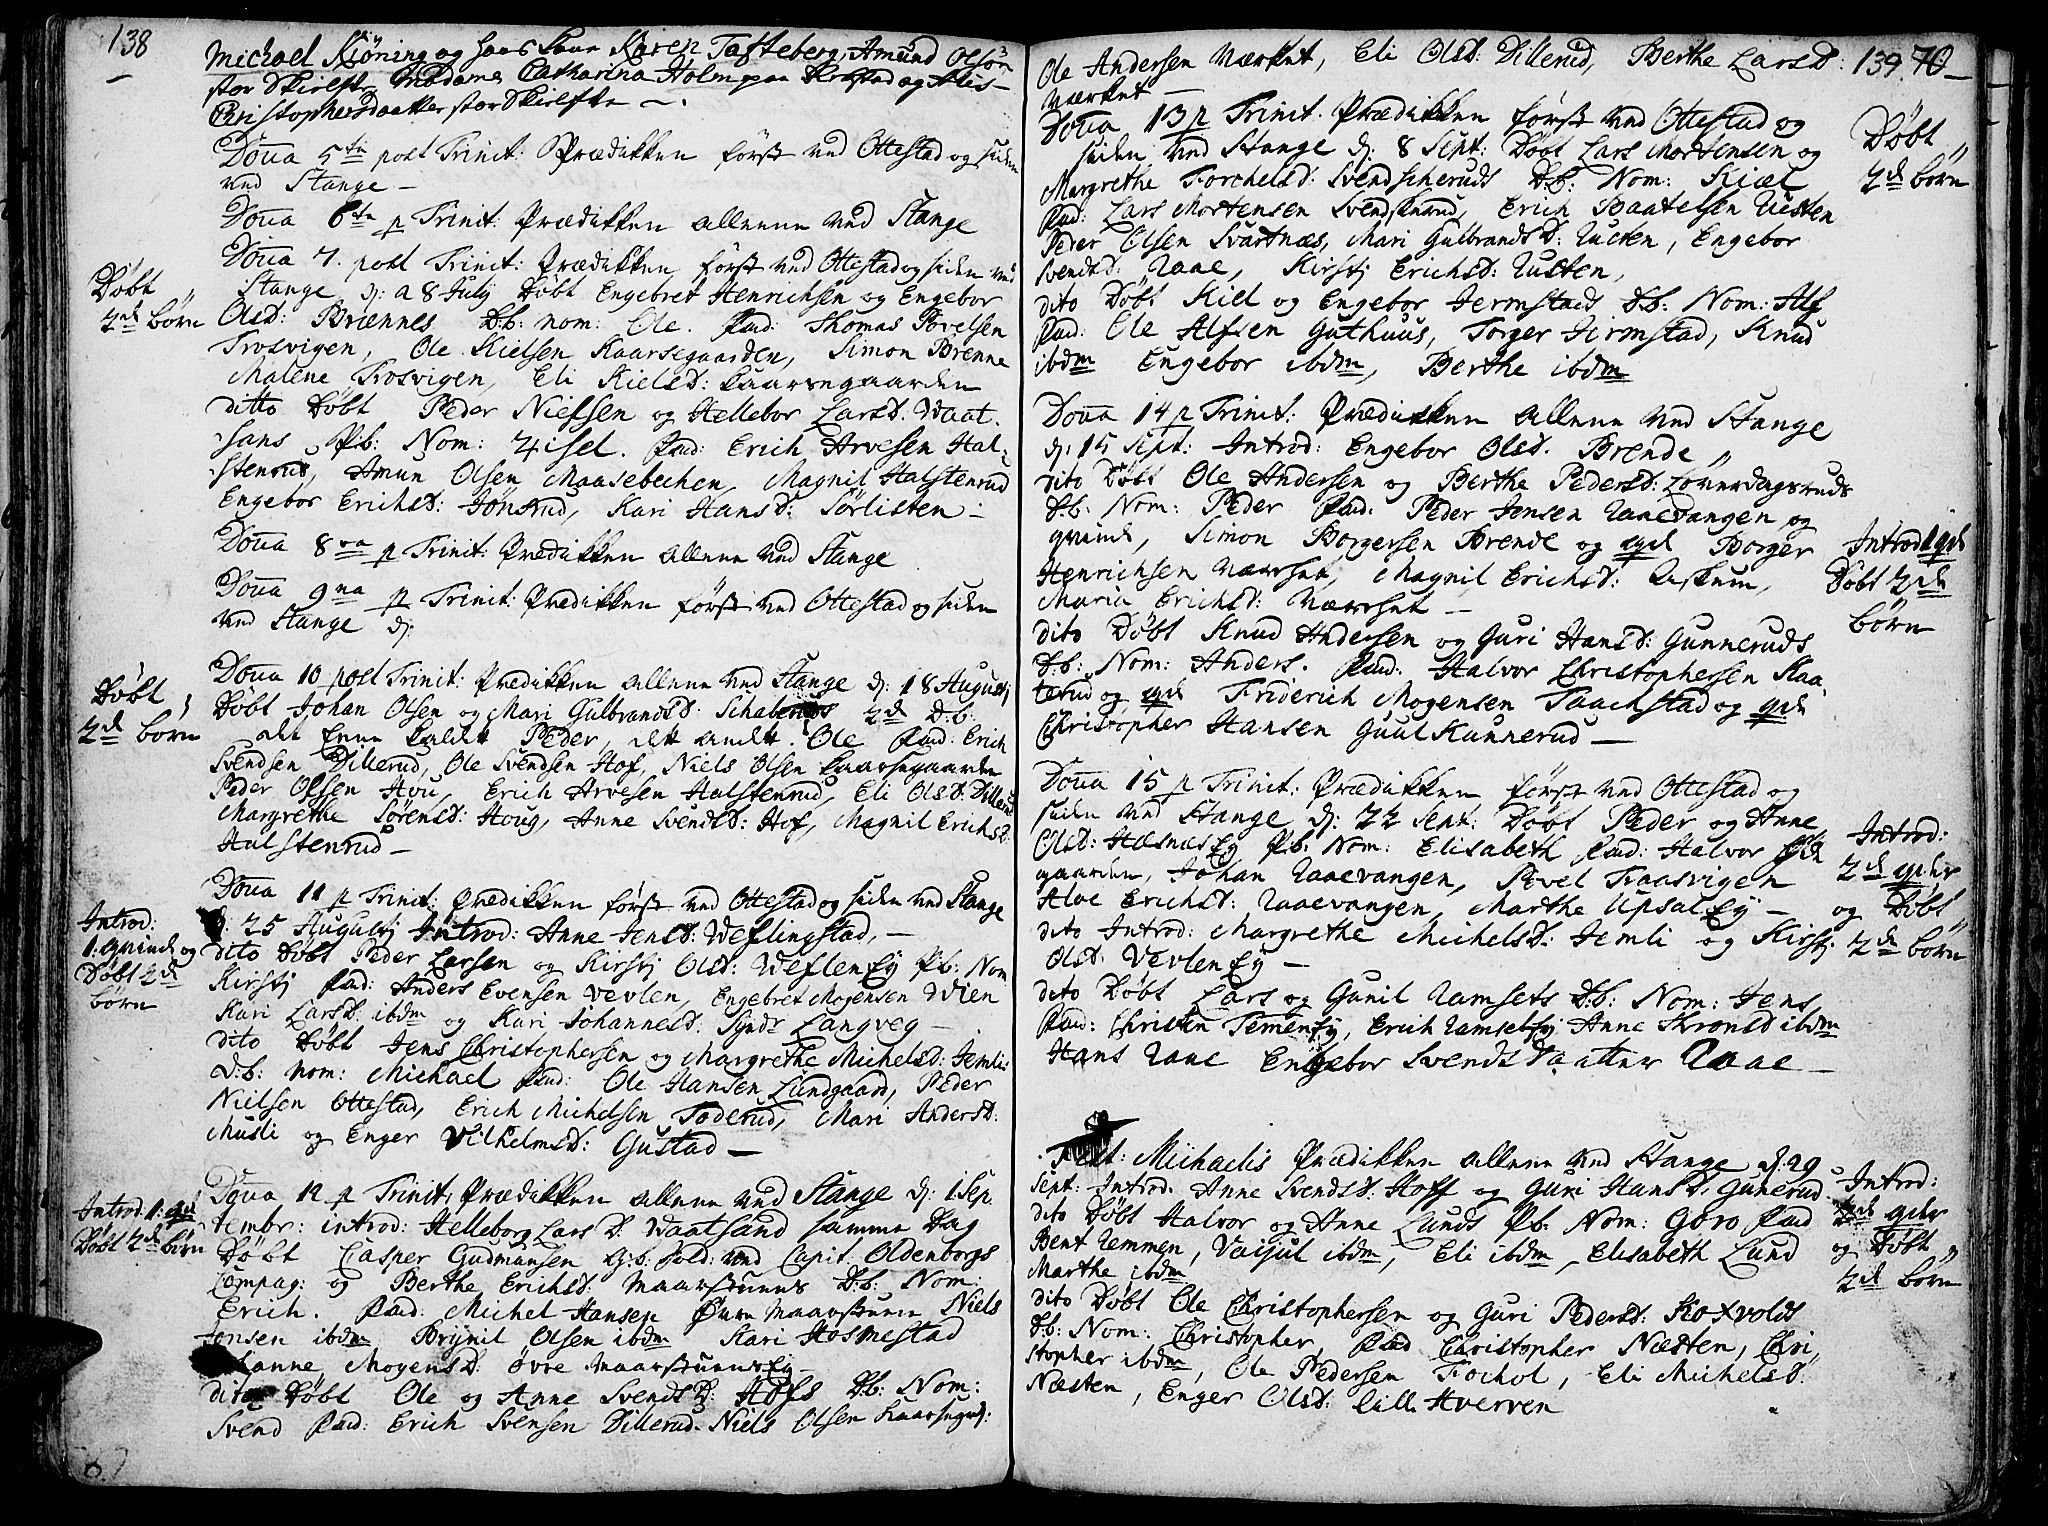 138
Michael Kiöning og hans Kone Karen Tafteberg, Amund Olsön
stor Skielft, Madame Catharina Holm paa Korstad og Alis
Christophersdaatter stor Skielfte
Dõna 5te post Trinit: Prædikken först ved Ottestad og siden
ved Stange —
Dõna 6te p Trinit: Prædikken allene ved Stange
Dõna 7. post Trinit: Prædikken först ved Ottestad og siden ved
Döbt
2de börn
Stange d: 28 July Döbt Engebret Henrichsen og Engebor
Olsd: Brennes D:b: nom: Ole. Fad: Thomas Povelsen
Trosvigen, Ole Kielsen Kaarsegaarden, Simon Brenne
Malene Trosvigen, Eli Kielsd: Kaarsegaarden
ditto Döbt Peder Nielssen og Hellebor Larsd: Waat-
sans P:b: Nom: Zisel. Fad: Erich Arvesen Hal-
stenrud, Amun Olsen Maasebechen, Magnil Halstenrud
Engebor Erichsd: Jönsrud, Kari Hansd: Sörlisten —
Dõna 8va p Trinit: Prædikken allene ved Stange
Dõna 9na p Trinit: Prædikken först ved Ottestad og siden
ved Stange d:
Döbt
2de börn
Dõna 10 post Trinit: Prædikken allene ved Stange d: 18 Augustj
Döbt Johan Olsen og Mari Gulbrandsd: 2de D:b:
det Enne kaldet Peder, dett andet Ole Fad: Erich
Svendsen Dillerud, Ole Svendsen Hof, Niels Olsen Kaarsegaarden
Peder Olsen Hou, Erich Arvesen Halstenrud, Eli Olsd: Dillerud
Margrethe Sörensd: Houg, Anne Svendsd: Hof, Magnil Erichsd:
Halstenrud —
Dõna 11 p Trinit: Prædikken först ved Ottestad og siden ved Stange
Introd:
1: qvinde og
Döbt 2de
börn
d: 25 Augustj Introd: Anne Jensd: Weflingstad, —
dito Döbt Peder Larsen og Kirstj Olsd: Weflen Ey P:b: Nom
Kirstj Fad: Anders Evensen Vevlen, Engebret Mogensen Wien
Kari Larsd: ibdm og Kari Johannesd: Syndr Langveg —
dito Döbt Jens Christophersen og Margrethe Michelsd: Jemli
D:b: nom: Michael Fad: Ole Hansen Lundgaard, Peder
Nielsen Ottestad, Erich Michelsen Foderud, Mari Andersd:
Musli og Enger Vilhelmsd: Gustad —
Introd. 1: qde
Döbt 2de börn
Dõna 12 p Trinit: Prædikken allene ved Stange d: 1 Sep-
tembr: introd: Helleborg Lars D. Waatsand samme Dag
Döbt Casper Gudmansen G:b: Sold: ved Capit Oldenborgs
Compag: og Berthe Erichsd: Maarstuens D:b: Nom:
Erich. Fad: Michel Hansen Övre Maarstuen Niels
Jensen ibdm Brÿnil Olsen ibdm Kari Hosmestad
Mogensd: övre Maarstuens Ey —
dito Döbt Ole og Anne Svendsd: Hofs D:b: Nom:
Svend Fad: Erich Svensen Dillerud, Niels Olsen Kaarsegd:
139. 70
Ole Andersen Værket, Eli Olsd: Dillerud, Berthe Larsd:
Værket —
Dõna 13 p Trinit: Prædikken först ved Ottestad og
siden ved Stange d: 8 Sept: Döbt Lars Mortensen og
Döbt
2de börn
Margrethe Torchelsd: Svendscheruds D:b: Nom: Kiæl
Fad: Lars Mortensen Svendskerud, Erich Baatelsen Uusten
Peder Olsen Svartnæs, Mari Gulbrandsd: Uusten, Engebor
Svendsd: Uaae, Kirstj Erichsd: Uusten,
dito Döbt Kiel og Engebor Jermstads D:b: Nom: Alf
Fad: Ole Alfsen Guthuus, Torger Jermstad, Knud
ibdm Engebor ibdm, Berthe ibdm
Dõna 14 p Trinit: Prædikken allene ved Stange
d: 15 Sept: Introd: Engebor Olsd. Brende
dito Döbt Ole Andersen og Berthe Pedersd: Löverdagsruds
D:b: Nom: Peder Fad: Peder Jensen Uaaevangen og
qvinde, Simon Borgersen Brende og qde Borger
Introd 1 qde
Döbt 2de
börn
Henrichsen Værket, Magnil Erichsd: Askum,
Maria Erichsd: Værket —
dito Döbt Knud Andersen og Guri Hansd: Gunneruds
D:b: Nom: Anders. Fad: Halvor Christophersen Kaa-
terud og qde Friderich Mogensen Taachstad og qde
Christopher Hansen Guul Kunnerud —
Dõna 15 p Trinit: Prædikken först ved Ottestad og
siden ved Stange d: 22 Sept: Döbt Peder og Anne
Introd:
2de qder
og Döbt
2de börn
Olsd: Hæsnæs Ey P:b: Nom: Elisabeth Fad: Halvor
gaarden, Johan Uaaevangen, Povel Traasvigen
Aloe Erichsd: Uaaevangen Marthe Upsal Ey —
dito Introd: Margrethe Michelsd: Jemli og Kirstj
Olsd: Vevlen Ey —
dito Döbt Lars og Gunil Uamsets D:b: Nom: Jens
Fad: Christen Temen Ey, Erich Uamset Ey Anne Skronsd ibdm
Hans Uaae Engebor Svends Daatter Uaae —
Fest: Michaelis Prædikken allene ved Stange d. 29
Sept: Introd. Anne Svendsd: Hoff og Guri Hansd: Gunerud
Introd:
2de qder
og Döbt
2de börn
dito Döbt Halvor og Anne Lunds P:b: Nom: Goro Fad
Bent Uemmen, Vaijul ibdm, Eli ibdm, Elisabeth Lund
Marthe ibdm
dito Döbt Ole Christophersen og Guri Pedersd: Koxvolds
D:b: Nom: Christopher, Fad Christopher Næsten, Chri-
stopher ibdm, Ole Pedersen Fochol, Eli Michelsd:
Næsten, Enger Olsd: lill Hverven